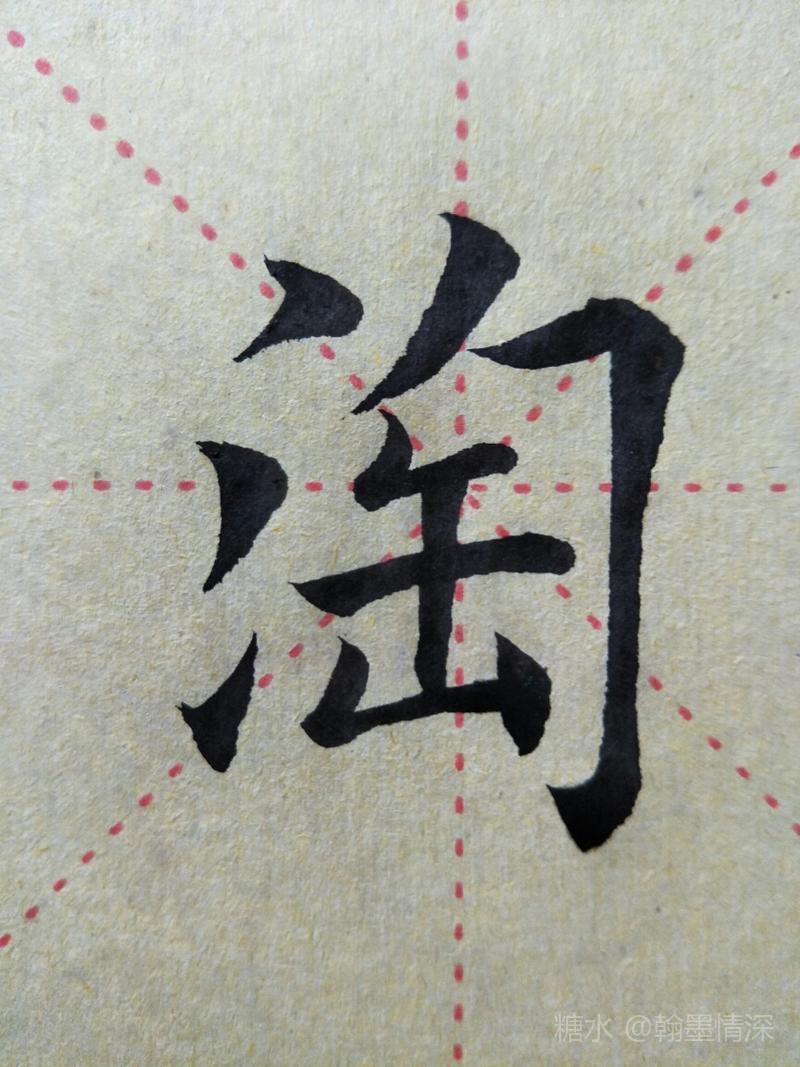 淘
糖水 @翰墨情深